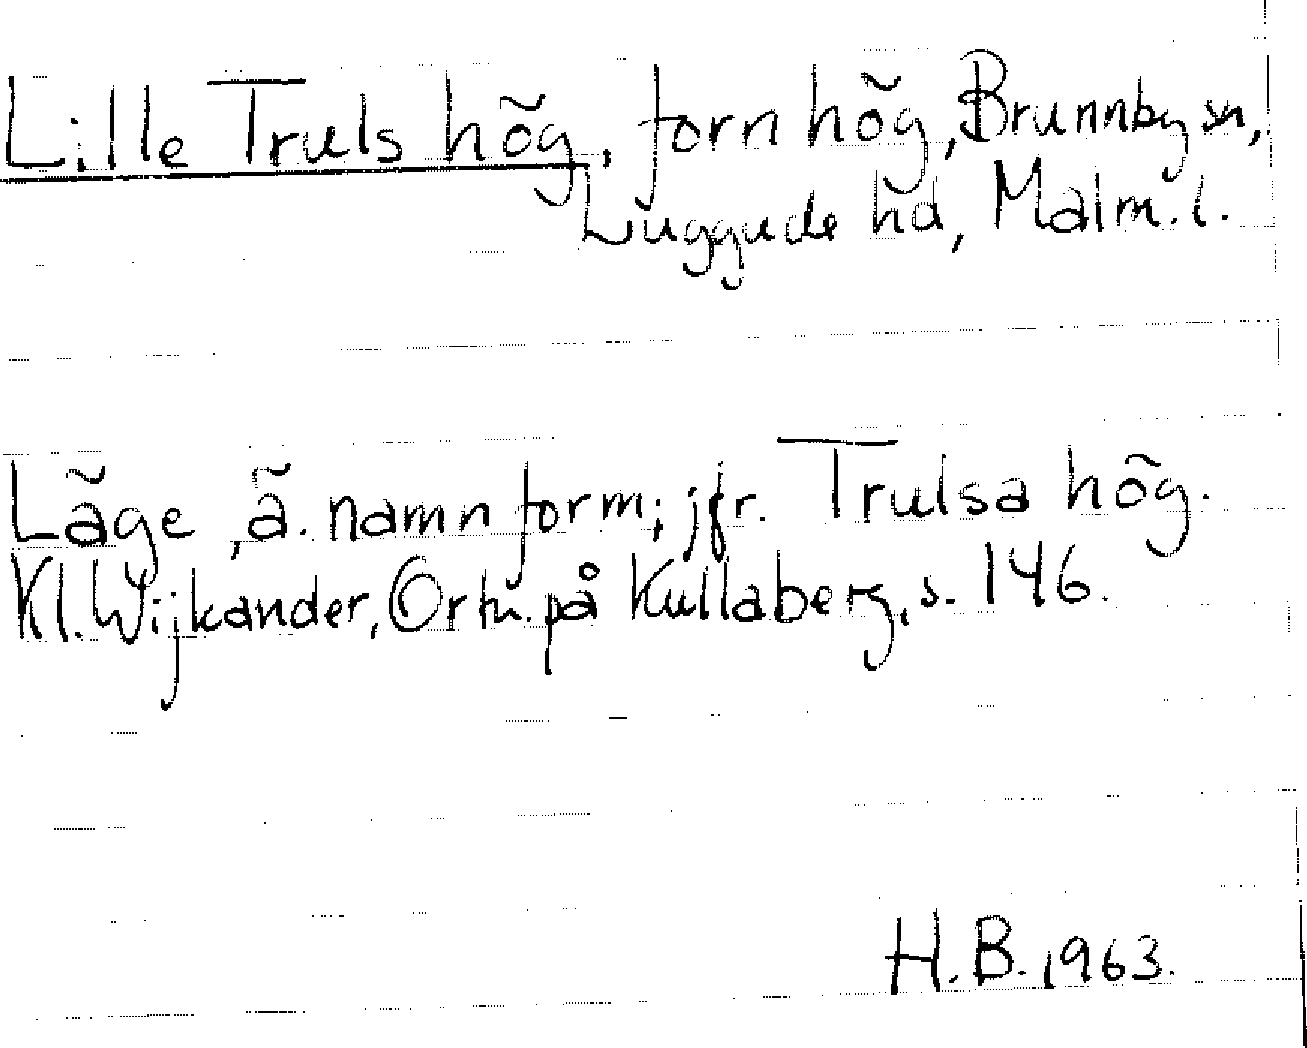 Lille Truls hög, fornhög, Brunnby sn,
Luggude hd, Malm. l.
Läge, ä. namnform; jfr. Trulsa hög.
Kl. Wijkander, Ortn. på Kullaberg, s. 146.
H.B. 1963.